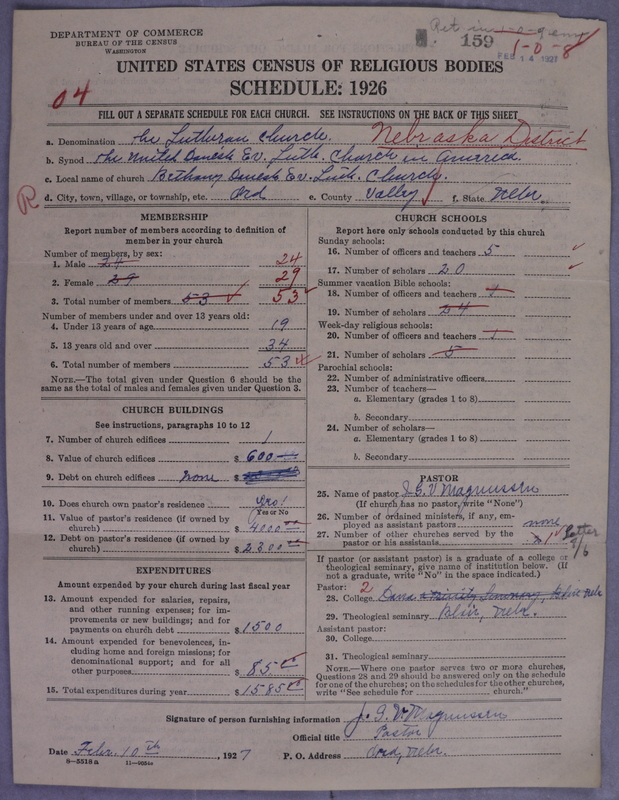 DEPARTMENT OF COMMERCE
BUREAU OF THE CENSUS
WASHINGTON
Ret in 1-0-9
159
1-0-8
FEB 14 1927
UNITED STATES CENSUS OF RELIGIOUS BODIES
SCHEDULE: 1926
04
FILL OUT A SEPARATE SCHEDULE FOR EACH CHURCH. SEE INSTRUCTIONS ON THE BACK OF THIS SHEET
a. Denomination The Lutheran Church. Nebraska District
b. Synod The United Danish Ev. Luth. Church in America.
c. Local name of church Bethany Danish Ev. Luth. Church.
R
d. City, town, village, or township, etc. Ord e. County Valley f. State Nebr.
MEMBERSHIP
Report number of members according to definition of
member in your church
Number of members, by sex:
1. Male 24 24
2. Female 29 29
3. Total number of members 53 53
Number of members under and over 13 years old:
4. Under 13 years of age 19
5. 13 years old and over 34
6. Total number of members 53
NOTE.—The total given under Question 6 should be
same as the total of males and females given under Question 3.
CHURCH BUILDINGS
See instructions, paragraphs 10 to 12
7. Number of church edifices 1
8. Value of church edifices $ 600
9. Debt on church edifices none $
10. Does church own pastor's residence Yes!
Yes or No
11. Value of pastor's residence (if owned by
church) $ 4000.00
12. Debt on pastor's residence (if owned by
church) $ 2300
EXPENDITURES
Amount expended by your church during last fiscal year
13. Amount expended for salaries, repairs,
and other running expenses; for im-
provements or new buildings; and for
payments on church debt $ 1500
14. Amount expended for benevolences, in-
cluding home and foreign missions; for
denominational support; and for all
other purposes $ 85
15. Total expenditures during year $ 1585
CHURCH SCHOOLS
Report here only schools conducted by this church
Sunday schools:
16. Number of officers and teachers 5
17. Number of scholars 20
Summer vacation Bible schools:
18. Number of officers and teachers 1
19. Number of scholars 24
Week-day religious schools:
20. Number of officers and teachers 1
21. Number of scholars 5
Parochial schools:
22. Number of administrative officers
23. Number of teachers—
a. Elementary (grades 1 to 8)
b. Secondary
24. Number of scholars—
a. Elementary (grades 1 to 8)
b. Secondary
PASTOR
25. Name of pastor J. G. V. Magnussen
(If church has no pastor, write "None")
26. Number of ordained ministers, if any, em-
ployed as assistant pastors none
27. Number of other churches served by the
pastor or his assistants 1 Letter
5/6
If pastor (or assistant pastor) is a graduate of a college or
theological seminary, give name of institution below. (If
not a graduate, write "No" in the space indicated.)
Pastor: 2
28. College Dana & Trinity Seminary, Blair Nebr
29. Theological seminary Blair, Nebr.
Assistant pastor:
30. College
31. Theological seminary
NOTE.—Where one pastor serves two or more churches,
Questions 28 and 29 should be answered only on the schedule
for one of the churches; on the schedules for the other churches,
write "See schedule for church."
Signature of person furnishing information J. G. V. Magnussen
Official title Pastor
Date Febr. 10th, 1927 P. O. Address Ord, Nebr.
8—5518 a 11—9051